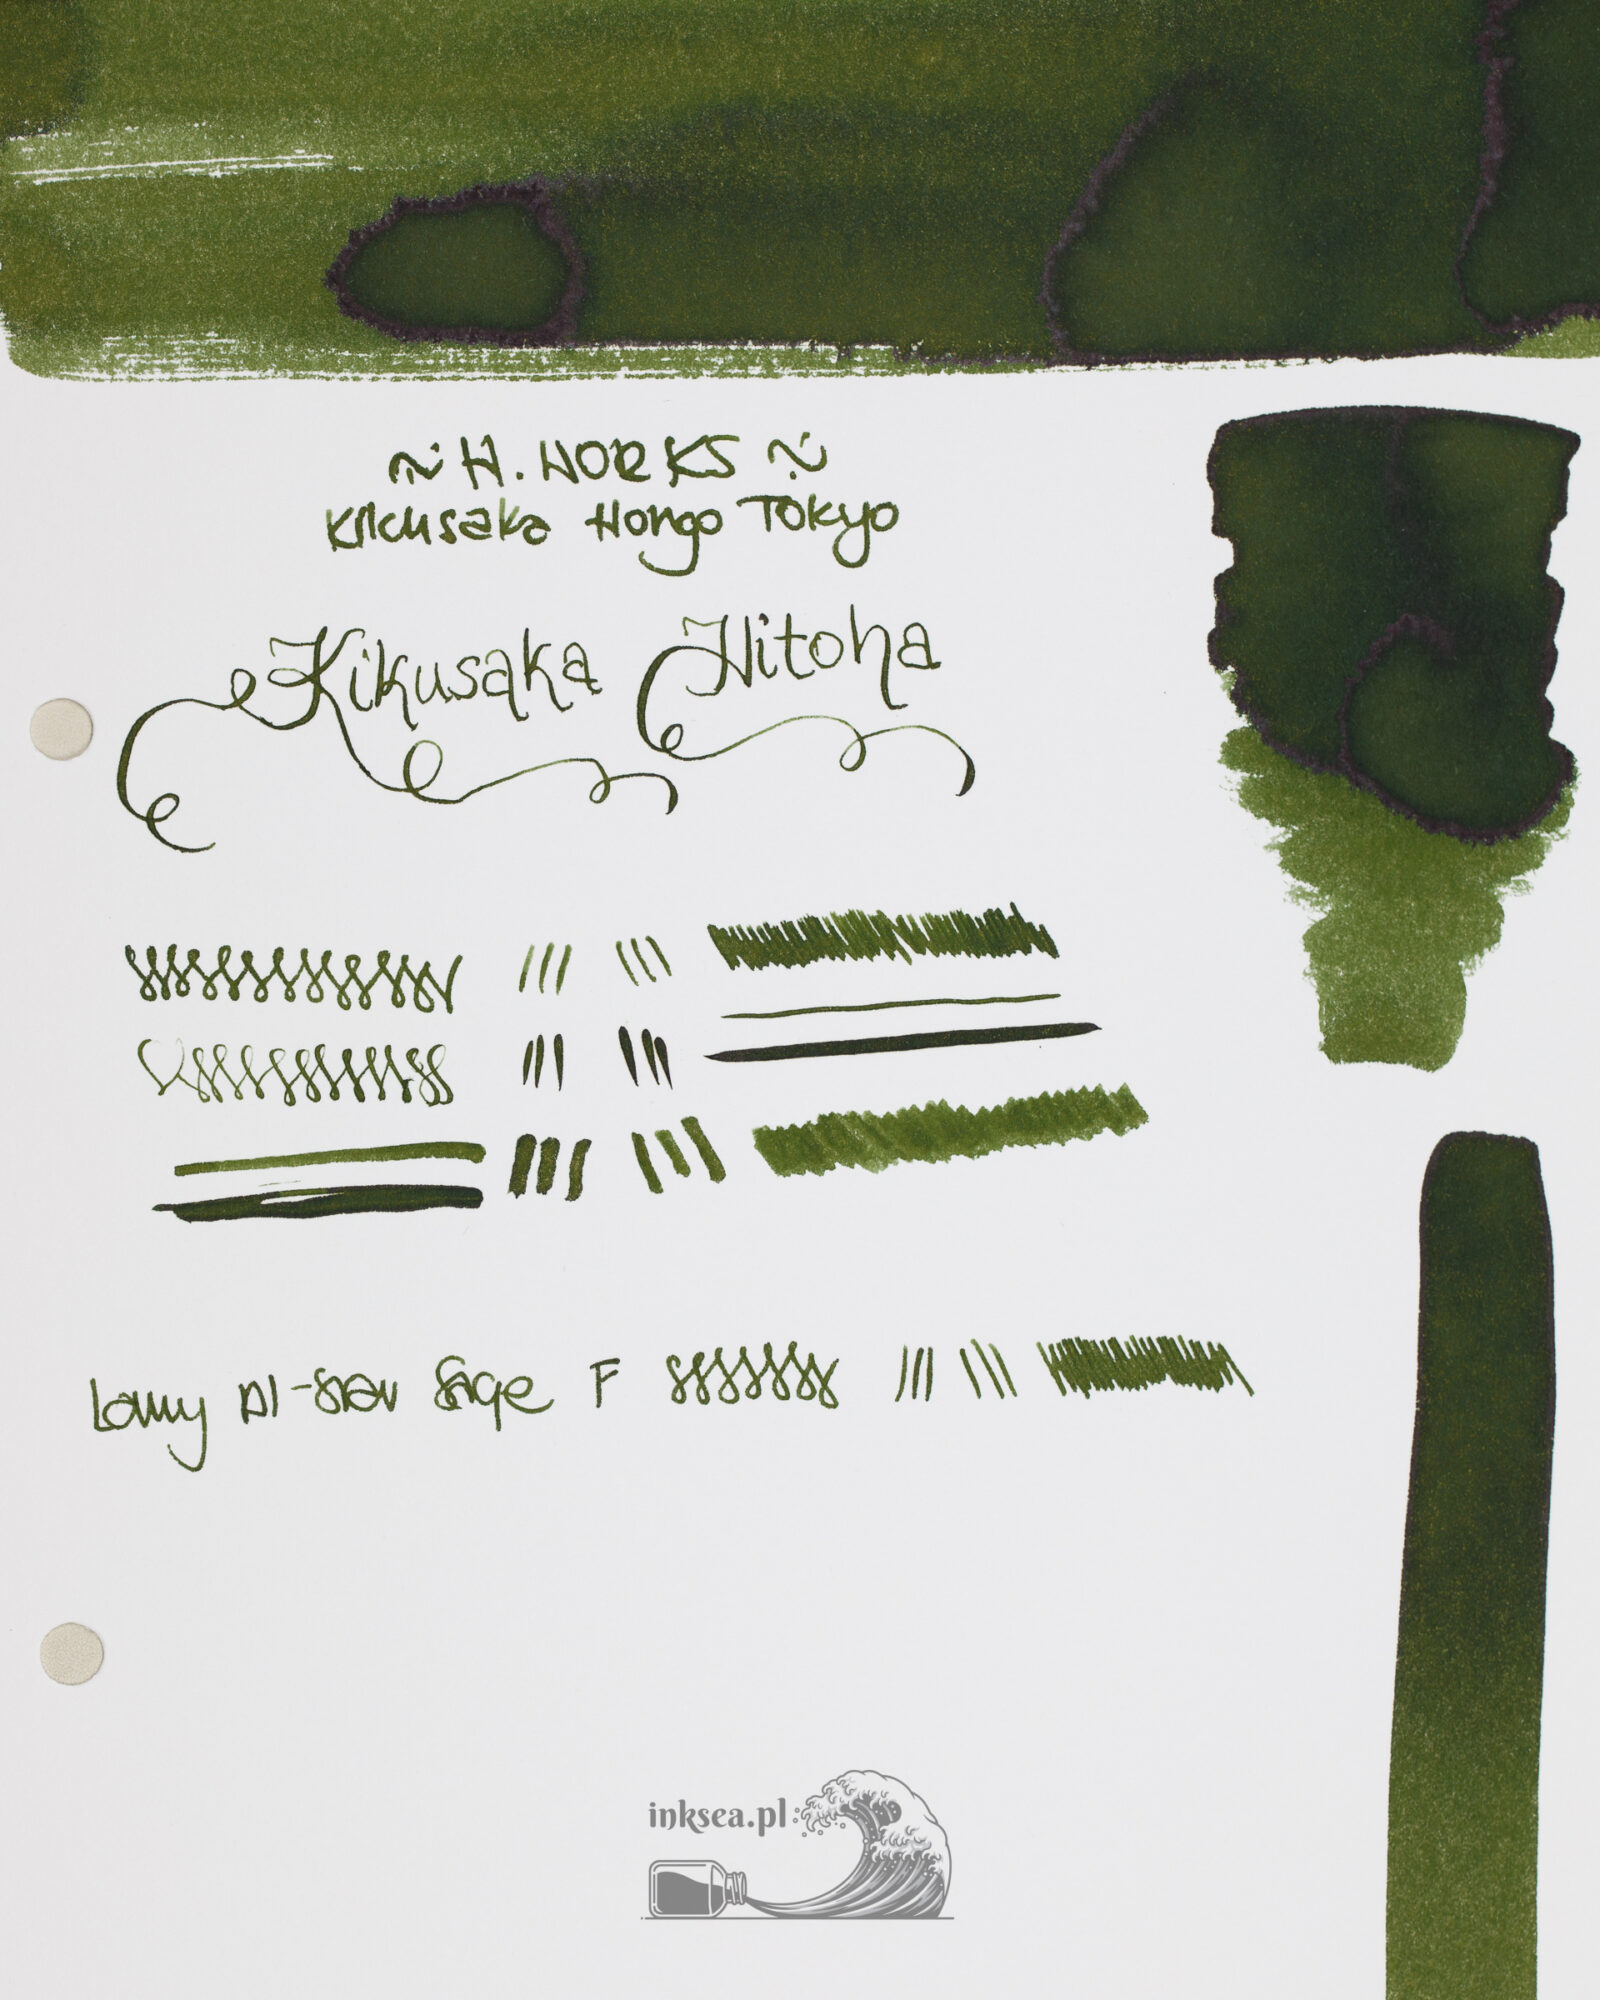 ~ H. WORKS ~
Kikusaka Hongo Tokyo
Kikusaka Hitoha
Lamy Al-star Sage F
inksea.pl